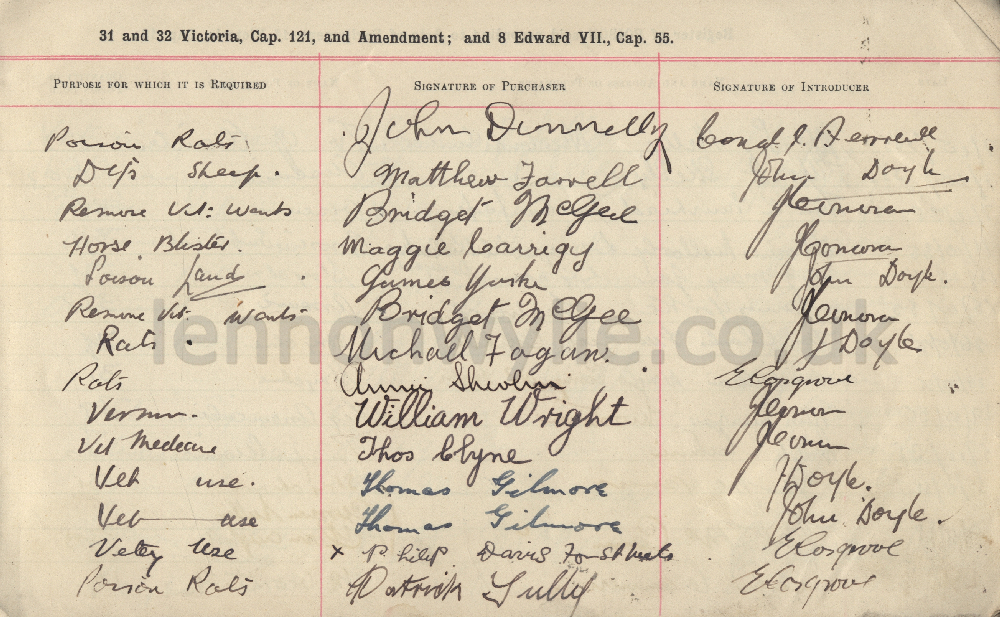 31 and 32 Victoria, Cap. 121, and Amendment; and 8 Edward VII., Cap. 55.
Purpose for which it is Required Signature of Purchaser Signature of Introducer
Poison Rats John Donnelly Const. J.
Dip Sheep. Matthew Farrell John Doyle
Remove Vet: Wants Bridget McGee
Horse Blister Maggie Carrigy
Poison Land James Yorke John Doyle.
Remove Vet. Wants Bridget McGee
Rats. Michael Fagan. J Doyle
Rats Annie Shevlin E Cosgrove
Vermin. William Wright
Vet Medecine Thos Clyne
Vet use. Thomas Gilmore J Doyle.
Vet use Thomas Gilmore John Doyle.
Vetey Use x Philip Davis For St Mels E Cosgrove
Poison Rats Patrick Tully E Cosgrove
lennonwylie.co.uk